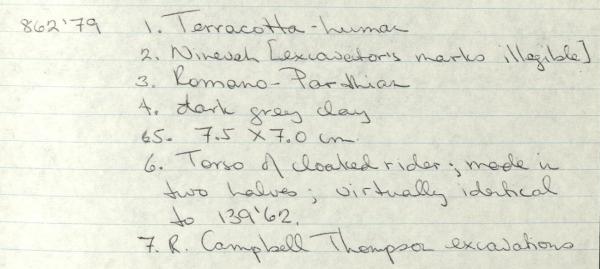 862'79 1. Terracotta-human
2. Nineveh [excavator's marks illegible]
3. Romano-Parthian
4. dark grey clay
65. 7.5 x 7.0 cm.
6. Torso of cloaked rider; made in
two halves; virtually identical
to 139'62.
7. R. Campbell Thompson excavations